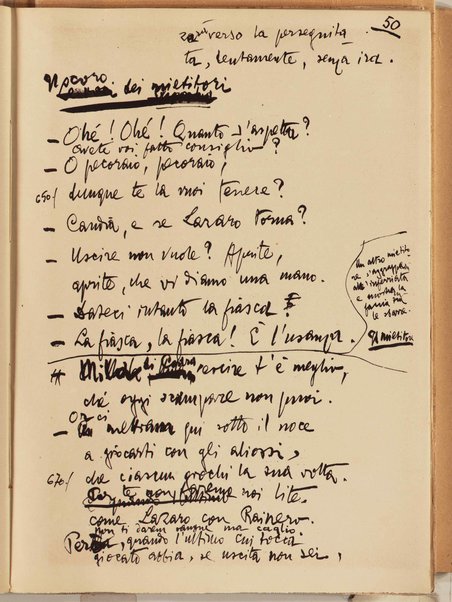 50
verso la perseguita
ta, lentamente, senza ira.
Il coro dei mietitori
— Ohé! Ohé! Quanto s'aspetta?
avete voi fatto consiglio?
— O pecoraio, pecoraio,
650/ dunque te la vuoi tenere?
— Candia, e se Lazaro torna?
— Uscire non vuole? Aprite,
aprite, che vi diamo una mano.
— Dateci intanto la fiasca!
— La fiasca, la fiasca! È l'usanza.
Un altro mietito
re s'aggrappa
all'inferriata
e mostra la
faccia tra
le sbarre.
Il mietitore
Mila di Codra uscire t'è meglio,
ché oggi scampare non puoi.
— Or ci mettiamo qui sotto il noce
a giocarti con gli aliossi,
670/ che ciascun giochi la sua volta.
Per te non faremo noi lite
come Lazaro con Rainero.
non ti darem sangue ma caglio.
Però, quando l'ultimo cui tocca
giocato abbia, se uscita non sei,